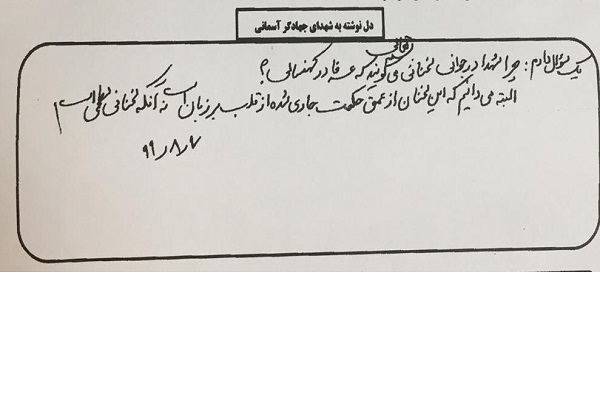 دل نوشته به شهدای جهادگر آسمانی
یک سؤال دارم: چرا شهدا در جوانی سخنانی می‌گویند که عرفا در کهنسالی؟
البته می دانیم که این سخنان از عمق حکمت جاری شده از قلب بر زبان است نه آنکه سخنانی است
۹۹٫۸٫۷